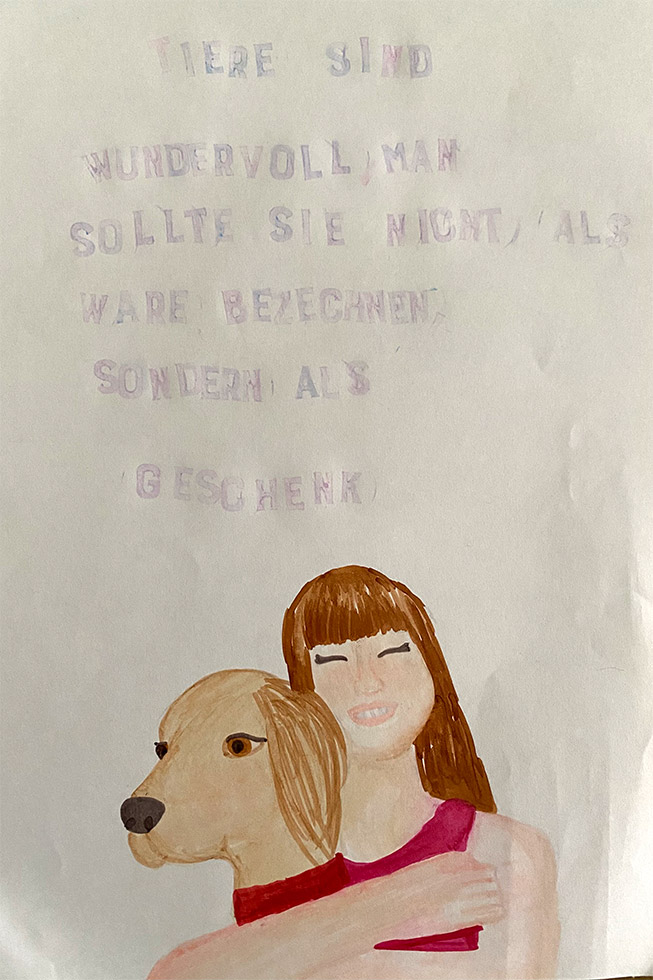 TIERE SIND
WUNDERVOLL, MAN
SOLLTE SIE NICHT, ALS
WARE BEZECHNEN,
SONDERN ALS
GESCHENK